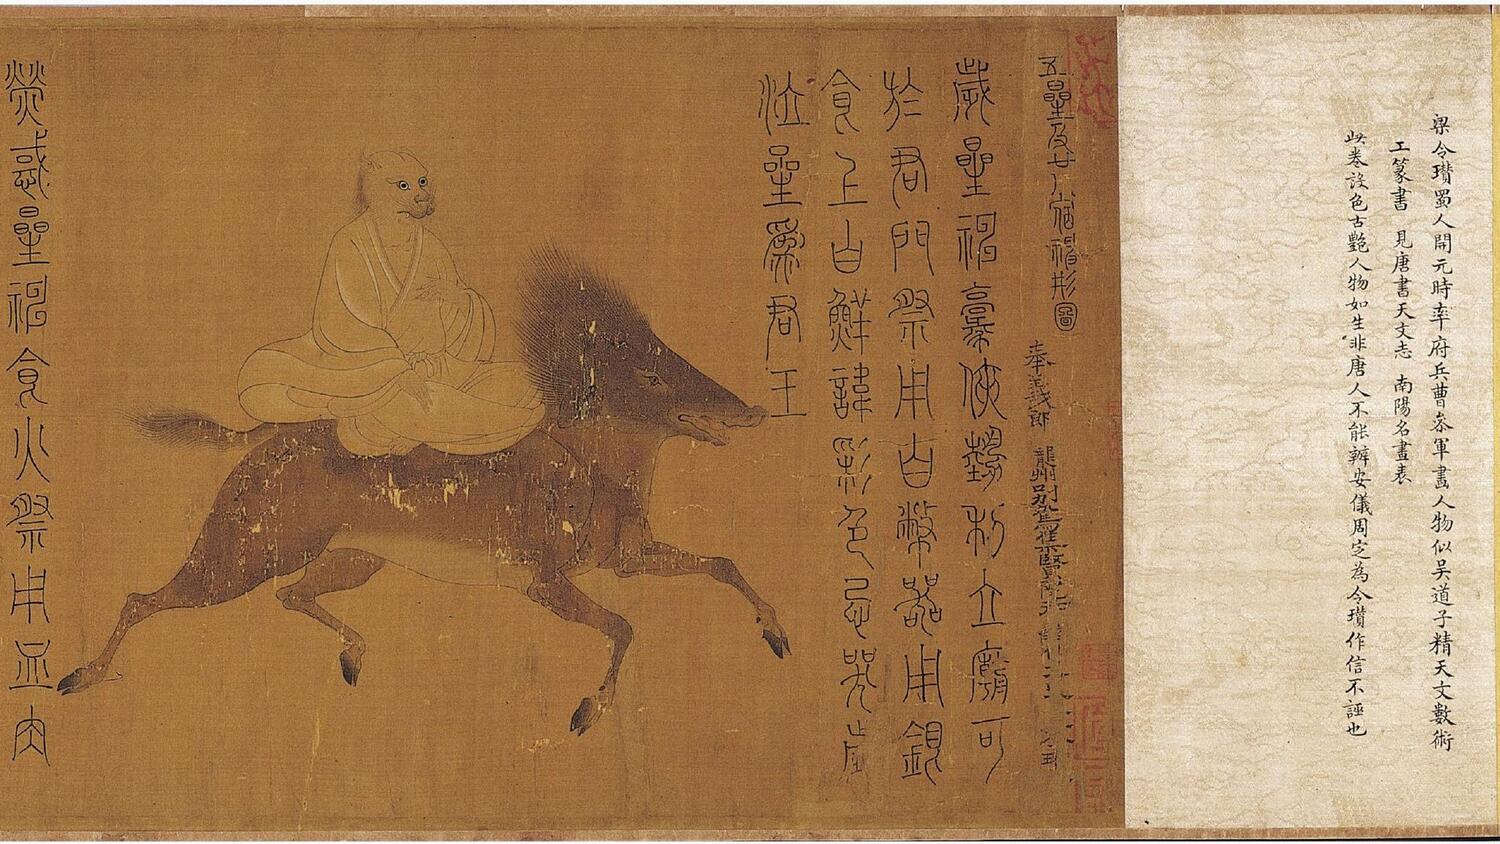 梁令瓚蜀人開元時率府兵曹叅軍畫人物似吴道子精天文數術
工篆書 見唐書天文志 南陽名畫表
此卷設色古艷人物如生非唐人不能辦安儀周定為令瓚作信不誣也
五星及廿八宿神形圖
奉義郎 隴州
歲星神豪俠勢利立廟可
於君門祭用白幣器用銀
食上白鮮諱彩色忌哭歲
星為君王
熒惑星神食火祭用血肉